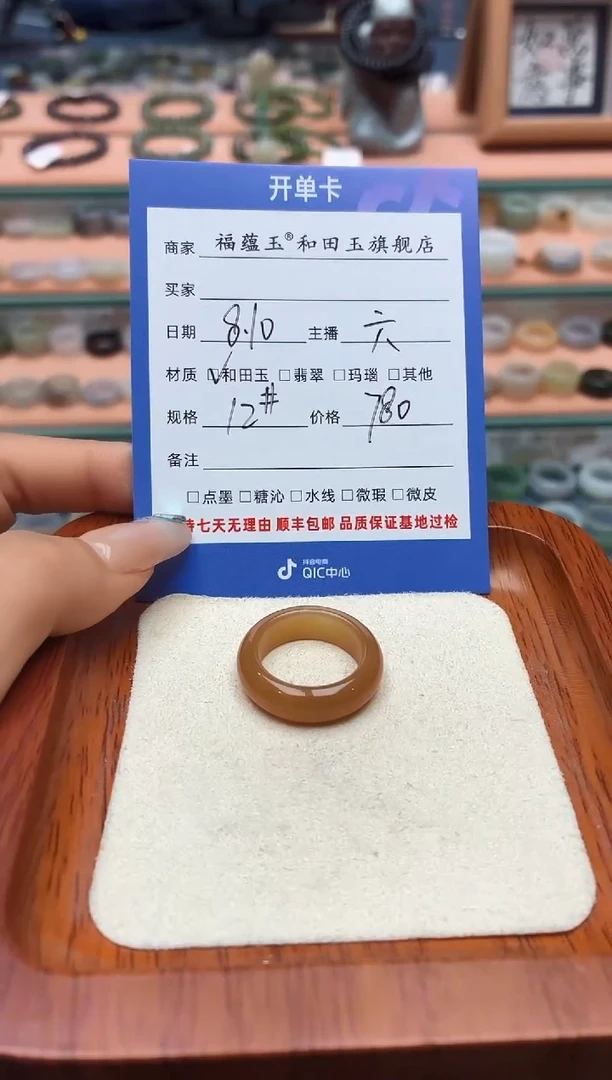 开单卡
商家 福蕴玉®和田玉旗舰店
买家
日期 8.10 主播 六
材质 ☑和田玉 □翡翠 □玛瑙 □其他
规格 12# 价格 780
备注
□点墨 □糖沁 □水线 □微瑕 □微皮
持七天无理由 顺丰包邮 品质保证基地过检
抖音电商
QIC中心